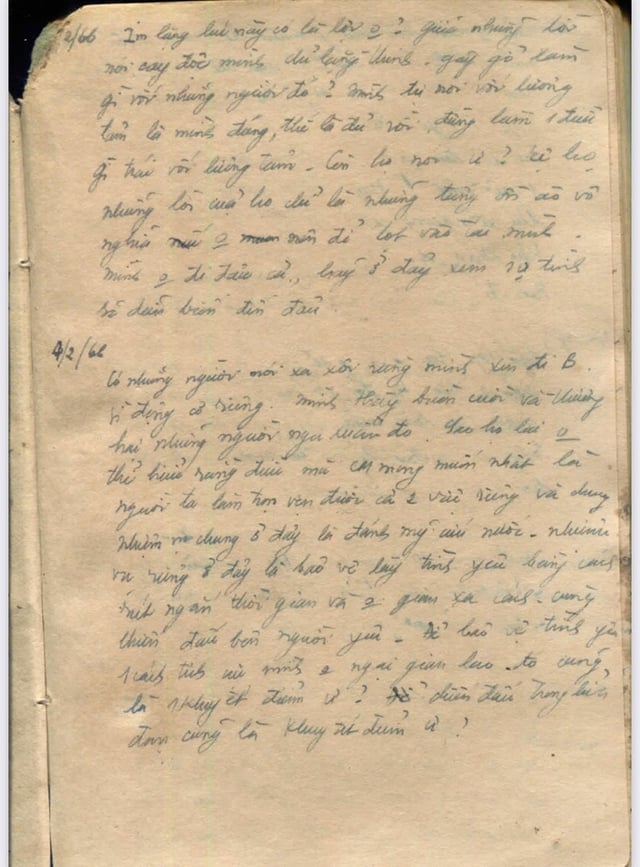 2/66 Im lặng lúc này có là lời o? giữa những lời
nói cay độc mình cứ lặng thinh. gây gổ làm
gì với những người đó? mình tự nói với lương
tâm là mình đúng, thế là đủ rồi, đừng làm 1 điều
gì trái với lương tâm. Còn họ nói ư? kệ họ
những lời của họ chỉ là những tiếng ồn ào vô
nghĩa o nên để lọt vào tai mình.
mình o đi đâu cả, hãy ở đây xem sự tình
sẽ diễn biến đến đâu.
4/2/66
Có những người nói xa xôi rằng mình xin đi B.
vì động cơ riêng. mình thấy buồn cười và thương
hại những người ngu xuẩn đó. Sao họ lại o
thể hiểu rằng điều mà CM mong muốn nhất là
người ta làm trọn vẹn được cả 2 việc riêng và chung
nhiệm vụ chung ở đây là đánh mỹ cứu nước. nhiệm
vụ riêng ở đây là bảo vệ lấy tình yêu bằng cách
rút ngắn thời gian và o gian xa cách. cùng
chiến đấu bên người yêu. bảo vệ tình yêu
1 cách tích cực mình o ngại gian lao. đó cũng
là 1 khuyết điểm ư? chiến đấu trong
cũng là khuyết điểm ư?